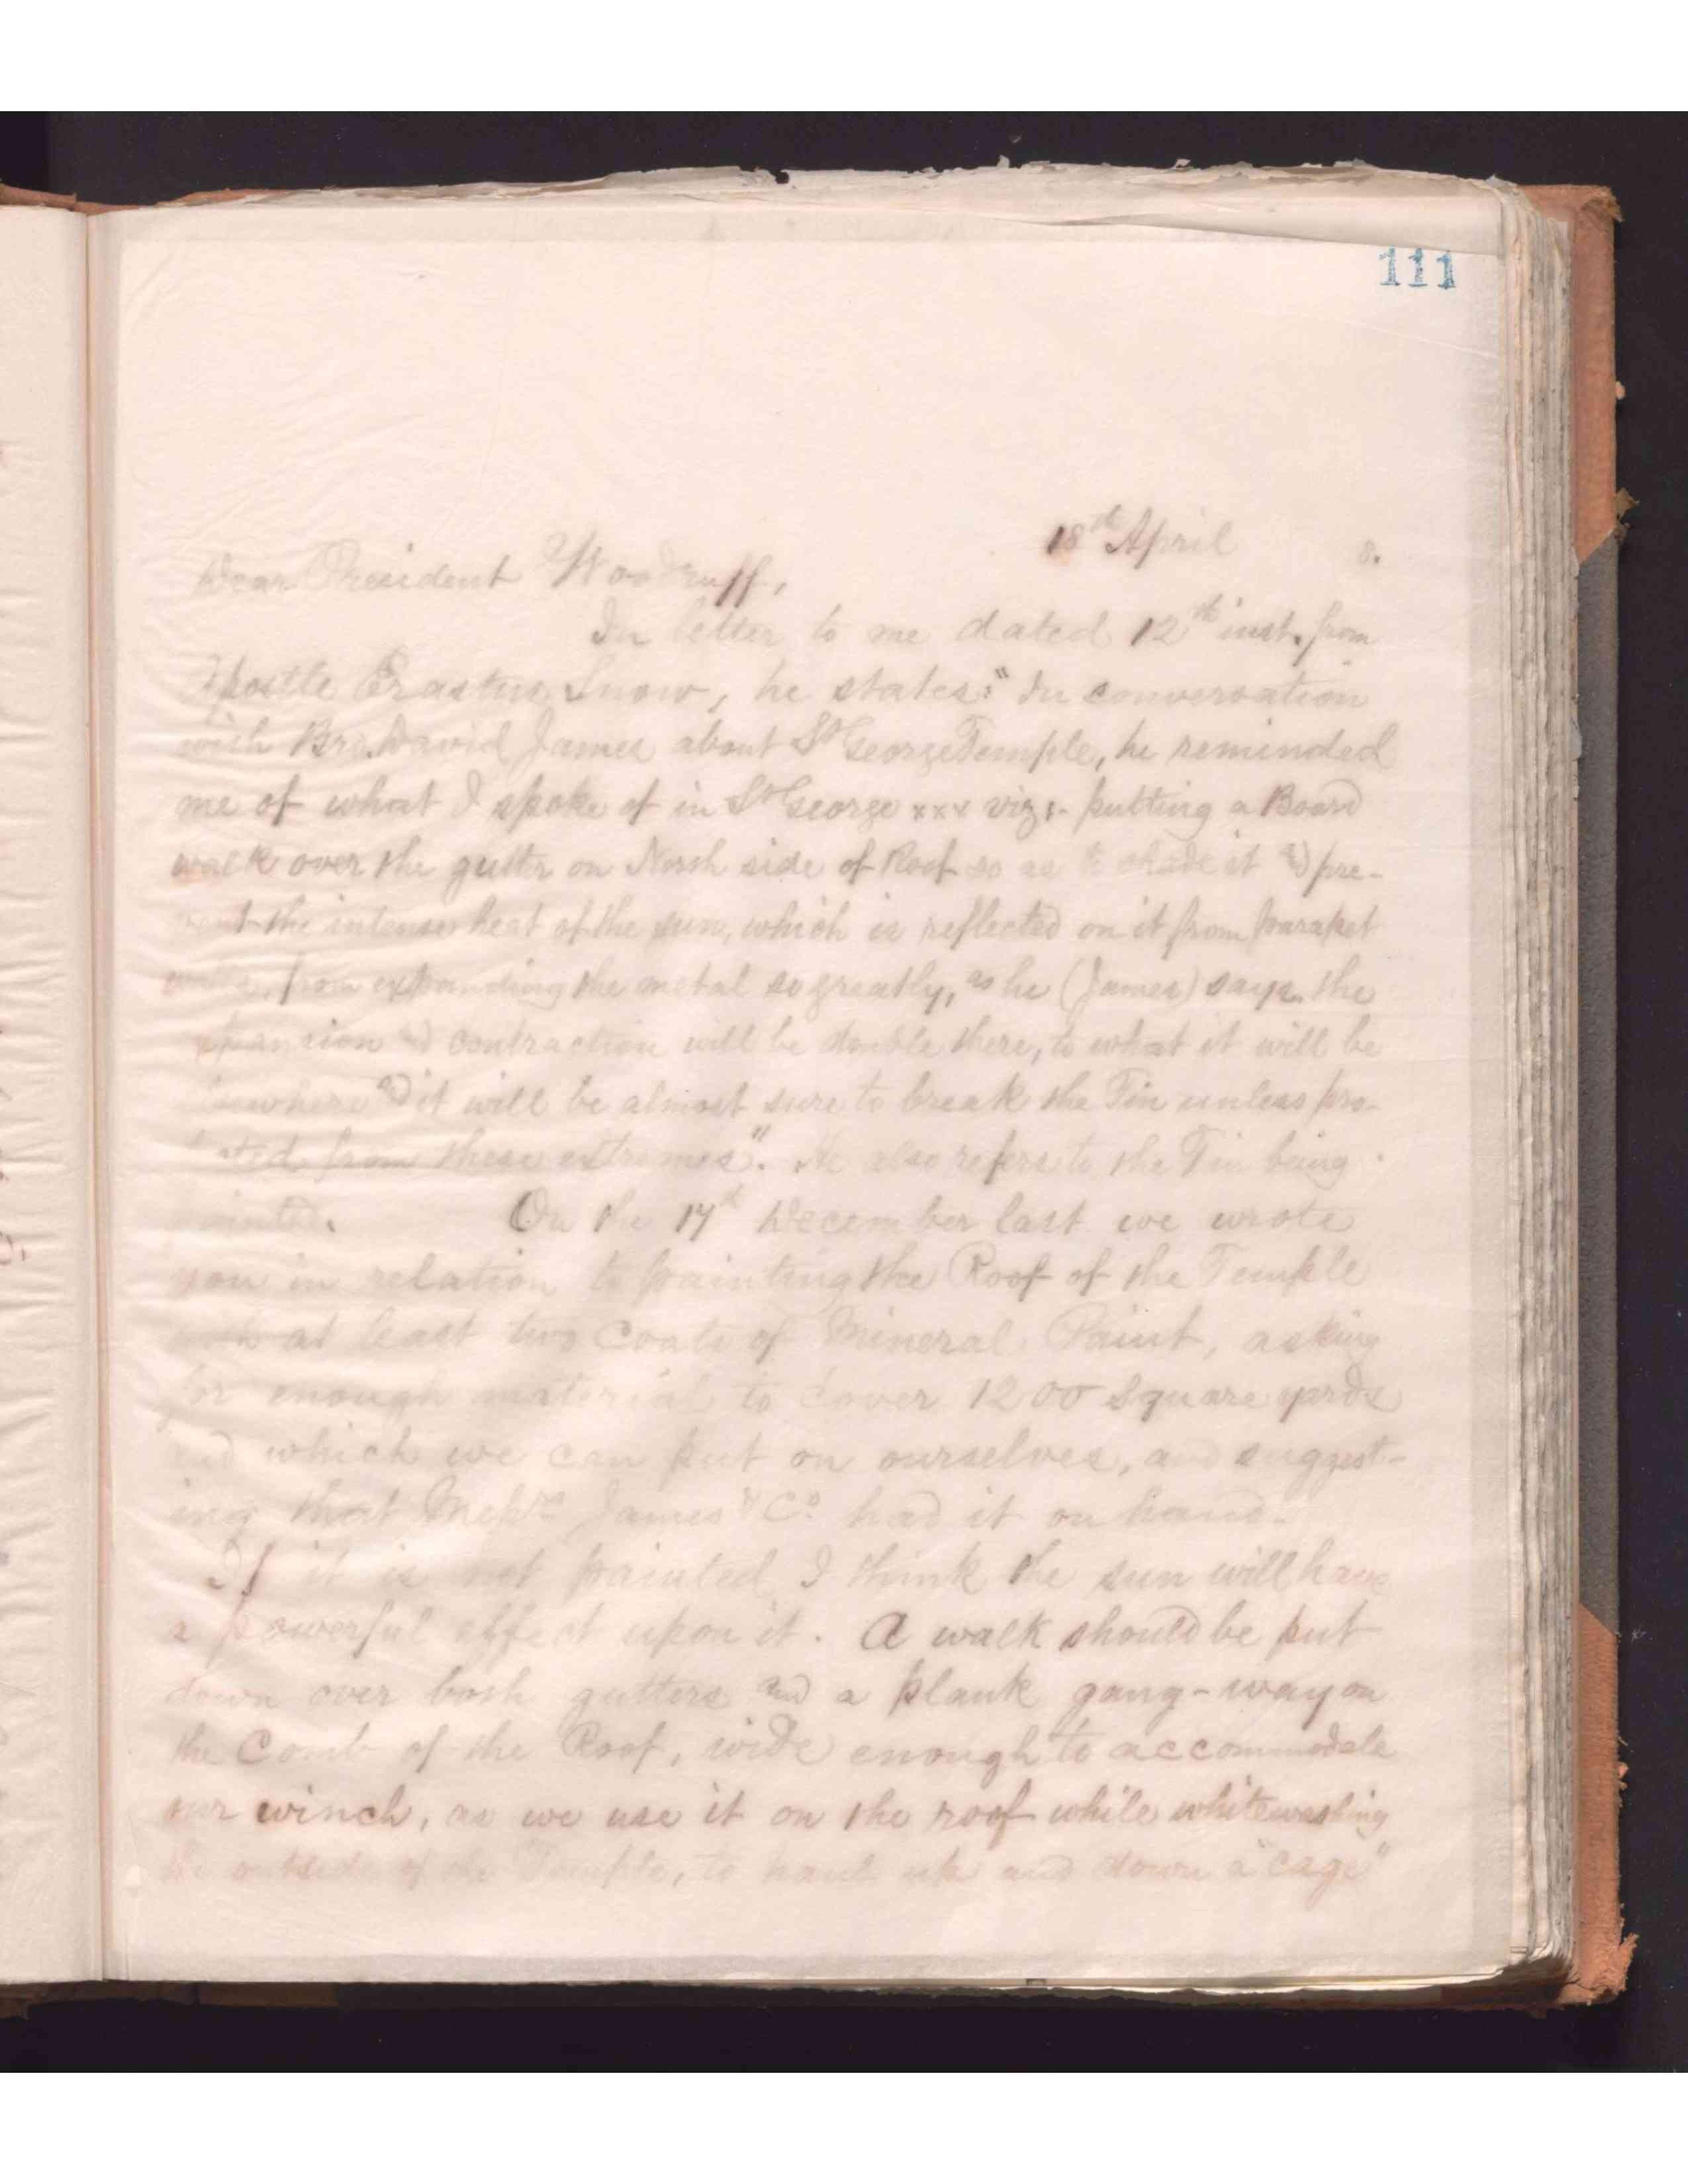 111
18th April 8.
Dear President Woodruff,
In letter to me dated 12th inst. from
Apostle Erastus Snow, he states: "In conversation
with Bro. David James about St George Temple, he reminded
me of what I spoke of in St George xxx viz:- putting a Board
walk over the gutter on North side of Roof so as to shade it and pre-
vent the intense heat of the sun, which is reflected on it from parapet
walls, from expanding the metal so greatly, as he (James) says, the
expansion and contraction will be double there, to what it will be
elsewhere and it will be almost sure to break the Tin unless pro-
tected from these extremes". He also refers to the Tin being
painted. On the 17th December last we wrote
you in relation to painting the Roof of the Temple
with at least two Coats of Mineral Paint, asking
for enough material to cover 1200 square yards
and which we can put on ourselves, and suggest-
ing that James & Co. had it on hand.
If it is not painted I think the sun will have
a powerful effect upon it. A walk should be put
down over both gutters and a plank gang-way on
the Comb of the Roof, wide enough to accommodate
our winch, as we use it on the roof while whitewashing
the outside of the Temple, to haul up and down a "cage"